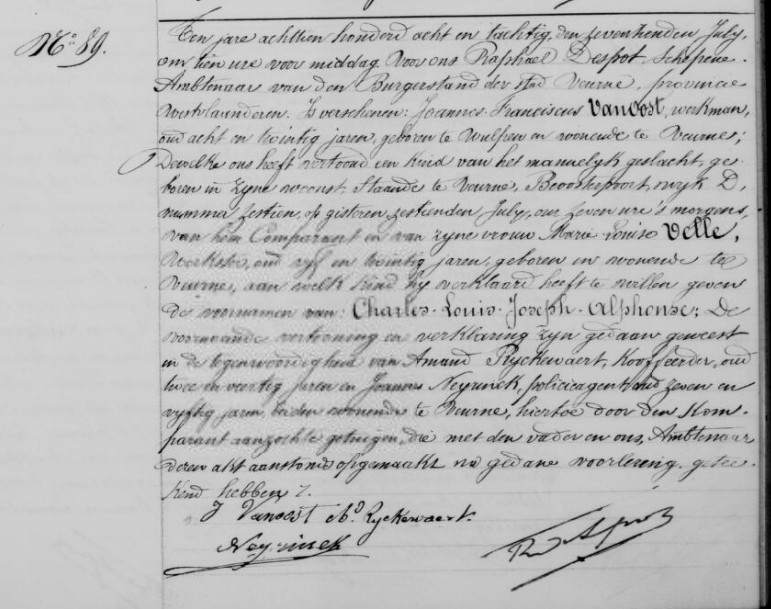 No. 89.
Ten jare achttien honderd acht en tachtig, den zeventienden July,
om tien ure voor middag voor ons Raphaël Despot Schepene
Ambtenaar van den Burgerstand der stad Veurne, provincie
Westvlaanderen. Is verschenen: Joannes Franciscus Vanoost, werkman,
oud acht en twintig jaren, geboren te Wulpen en wonende te Veurne;
Dewelke ons heeft vertoond een kind van het mannelyk geslacht, ge-
boren in zyne woonst, staande te Veurne, Beoosterpoort, wyk D,
nummer zestien, op gisteren, zestienden July, om zeven ure 's morgens,
van hem Comparant en van zyne vrouw Marie Louise Velle,
Werkster, oud vyf en twintig jaren, geboren en wonende te
Veurne, aan welk kind hy verklaard heeft te willen geven
de voornamen van: Charles-Louis-Joseph-Alphonse; De
voornoemde vertooning en verklaring zyn gedaan geweest
in de tegenwoordigheid van Amand Ryckewaert, oud
twee en veertig jaren en Joannes Neyrinck, policieagent, oud zeven en
vyftig jaren, beiden wonende te Veurne, hiertoe door den Kom-
parant aanzochte getuigen, die met den vader en ons, Ambtenaar
deren akt aanstonds opgemaakt na gedane voorlezing, getee-
kend hebben
J Vanoost Ad. Ryckewaert.
Neyrinck